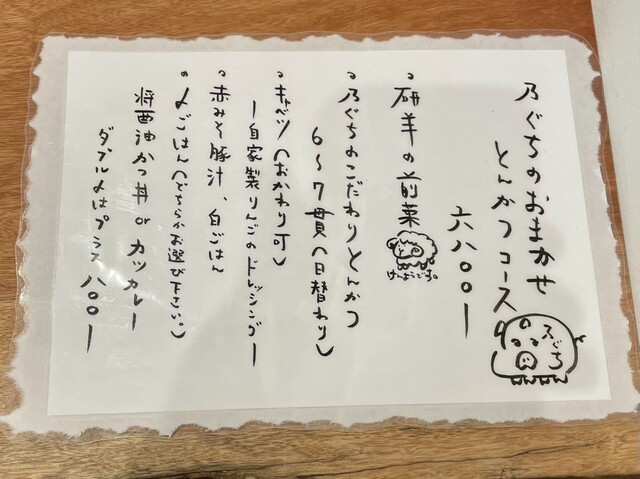 乃ぐちのおまかせ
とんかつコース
六八〇〇ー
乃ぐち
・研羊の前菜
けんようです。
・乃ぐちのこだわりとんかつ
6〜7貫(日替わり)
・キャベツ(おかわり可)
ー自家製りんごのドレッシングー
・赤みそ豚汁、白ごはん
・〆ごはん(どちらかお選び下さい。)
醤油かつ丼 or カツカレー
ダブル〆はプラス 八〇〇ー